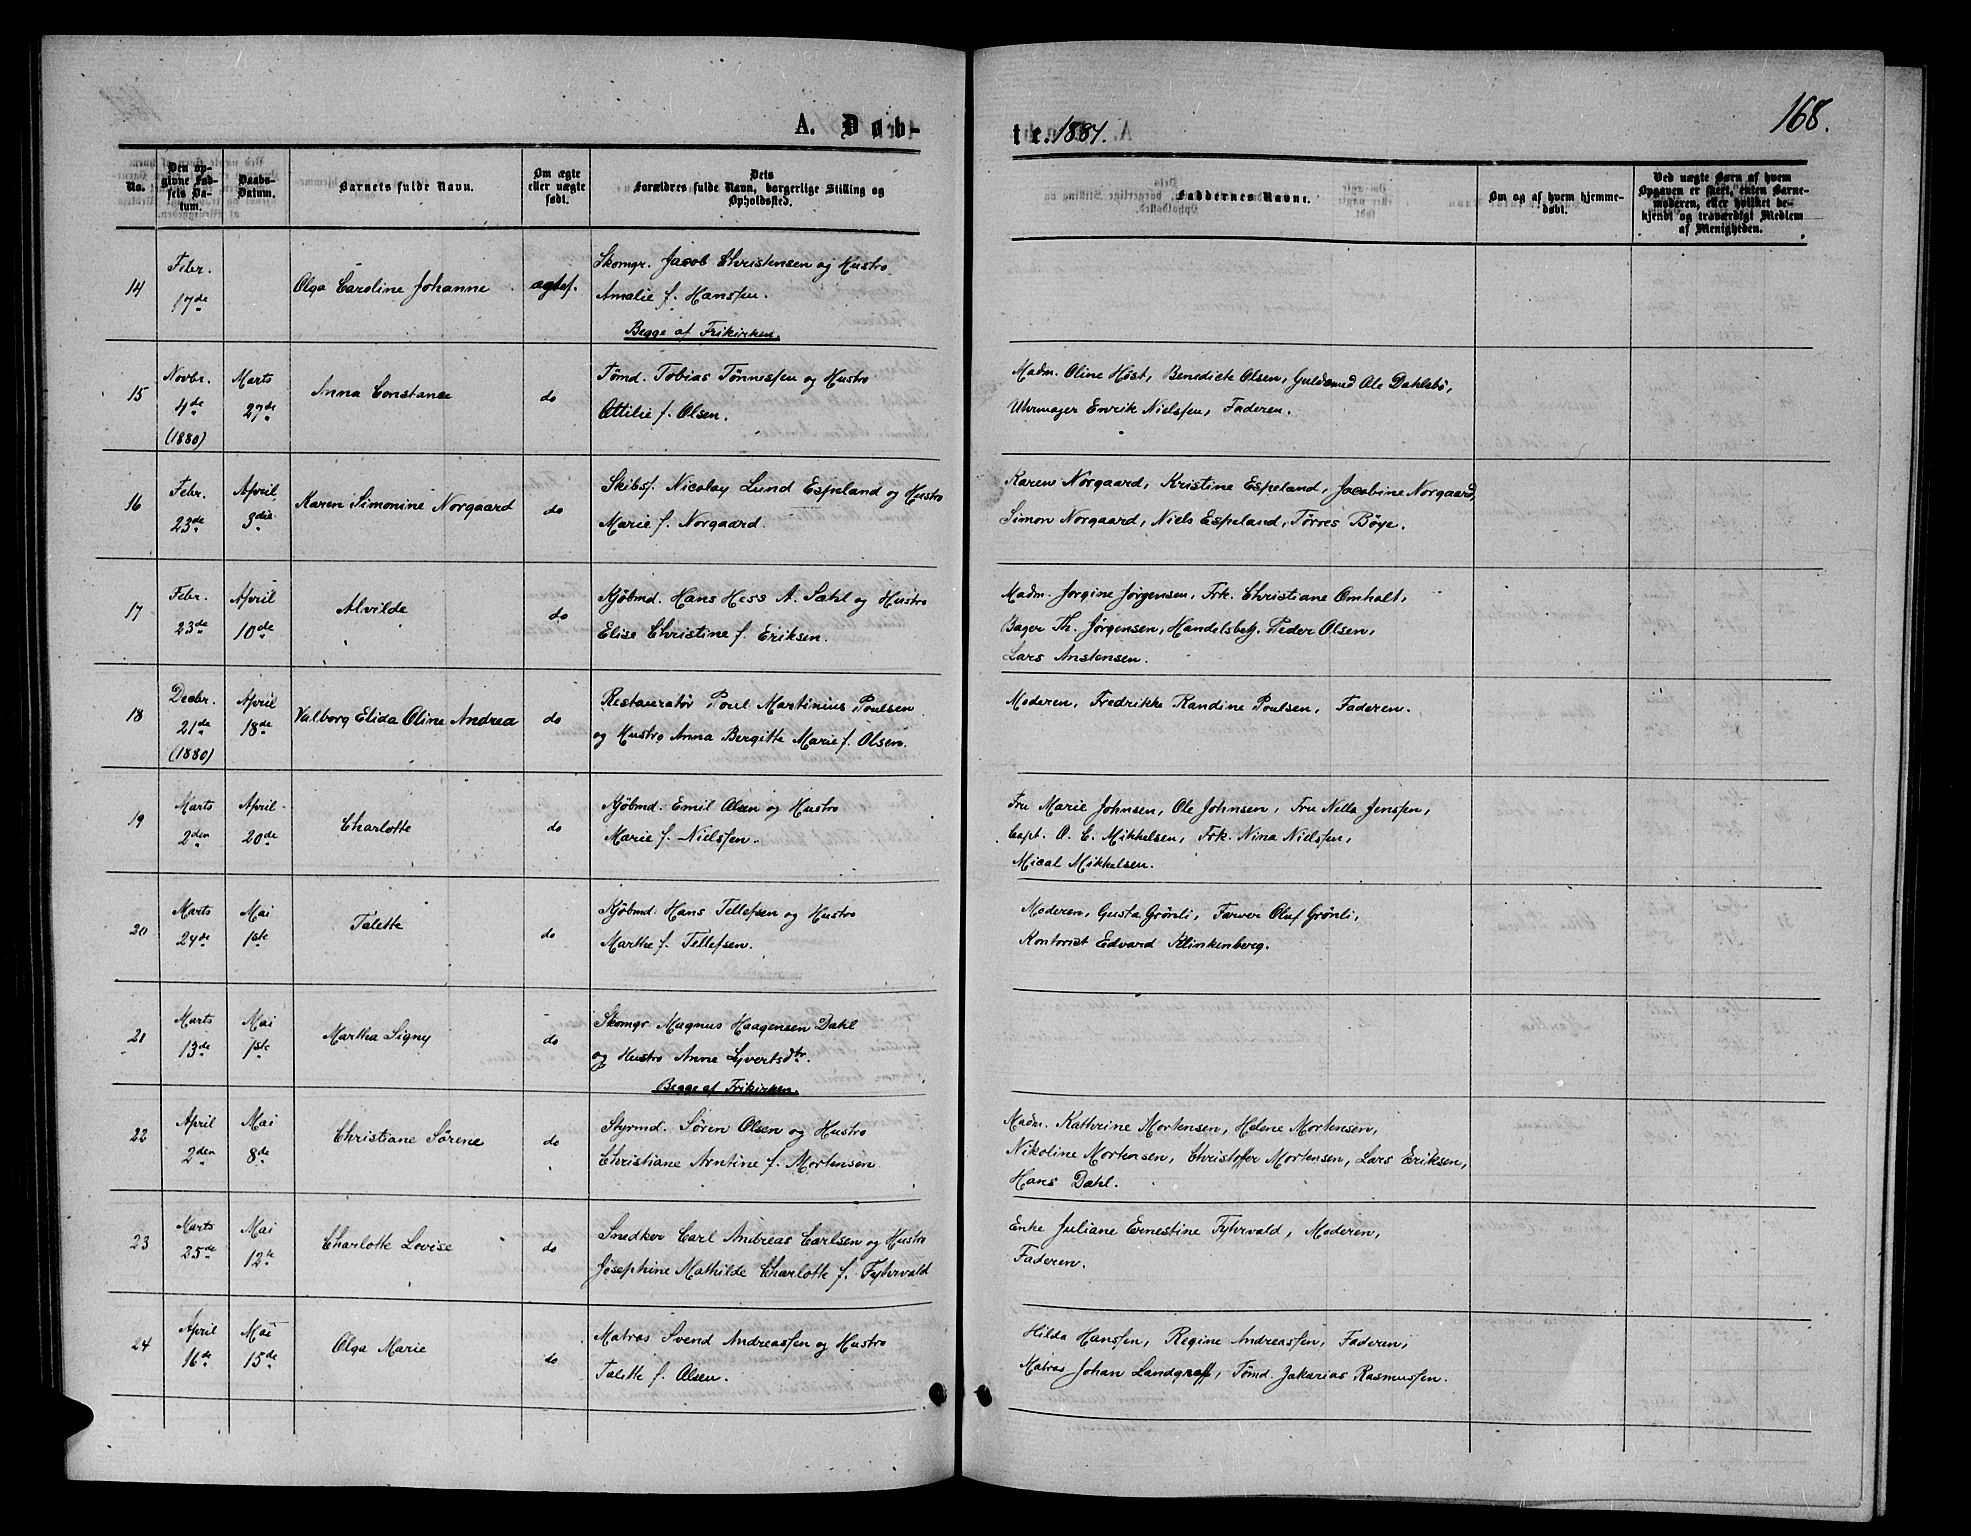 168.
A. Døb-
te. 1881.
No.
Den opgivne Fødsels Datum.
Daabs-Datum.
Barnets fulde Navn.
Om ægte eller uægte født.
Dets Forældres fulde Navn, borgerlige Stilling og Opholdssted.
Faddernes Navne.
Om og af hvem hjemmedøbt.
Ved uægte Børn af hvem Opgaven er skeet, enten Barnemoderen, eller hvilket bekjendt og troværdigt Medlem af Menigheden.
14 Febr. 17de Olga Caroline Johanne ægtef.
Skomgr. Jacob Christensen og Hustro
Amalie f. Hansen.
Begge af Frikirken.
15 Novbr. 4de (1880) Marts 27de Anna Constance do
Tømd. Tobias Tønnessen og Hustro
Ottilie f. Olsen.
Madm. Oline Høst, Benedicte Olsen, Guldsmed Ole Dahlsbø,
Uhrmager Enrik Nielssen, Faderen.
16 Febr. 23de April 3die Karen Simonine Norgaard do
Skibsf. Nicolay Lund Espeland og Hustro
Marie f. Norgaard.
Karen Norgaard, Kristine Espeland, Jacobine Norgaard,
Simon Norgaard, Niels Espeland, Tørres Bøye.
17 Febr. 23de April 10de Alvilde do
Kjøbmd. Hans Hess A. Sahl og Hustro
Elise Christine f. Eriksen.
Madm. Jorgine Jørgensen, Frk. Christiane Omholt,
Bager Th. Jørgensen, Handelsbetj. Peder Olsen,
Lars Anstensen.
18 Decbr. 21de (1880) April 18de Valborg Elida Oline Andrea do
Restauratør Poul Martinius Poulsen
og Hustro Anna Bergitte Marie f. Olsen.
Moderen, Fredrikke Randine Poulsen, Faderen.
19 Marts 2den April 20de Charlotte do
Kjøbmd. Emil Olsen og Hustro
Marie f. Nielssen.
Fru Marie Johnsen, Ole Johnsen, Fru Nella Jenssen,
Capt. O. C. Mikkelsen, Frk. Nina Nielssen,
Mical Mikkelsen.
20 Marts 24de Mai 1ste Talette do
Kjøbmd. Hans Tellefsen og Hustro
Marthe f. Tellefsen.
Moderen, Gusta Grønli, Farver Oluf Grønli,
Kontorist Edvard Klinkenberg.
21 Marts 13de Mai 1ste Martha Signy do
Skomgr. Magnus Haagensen Dahl
og Hustro Anne Syvertsdtr.
Begge af Frikirken.
22 April 2den Mai 8de Christiane Sørene do
Styrmd. Søren Olsen og Hustro
Christiane Arntine f. Mortensen
Madm. Kathrine Mortensen, Helene Mortensen,
Nikoline Mortensen, Christoffer Mortensen, Lars Eriksen,
Hans Dahl.
23 Marts 25de Mai 12te Charlotte Lovise do
Snedker Carl Andreas Carlsen og Hustro
Josephine Mathilde Charlotte f. Fyhrvald
Enke Juliane Ernestine Fyhrvald, Moderen,
Faderen.
24 April 16de Mai 15de Olga Marie do
Matros Svend Andreassen og Hustro
Talette f. Olsen.
Hilda Hanssen, Regine Andreassen, Faderen,
Matros Johan Landgraff, Tømd. Zakarias Rasmussen.